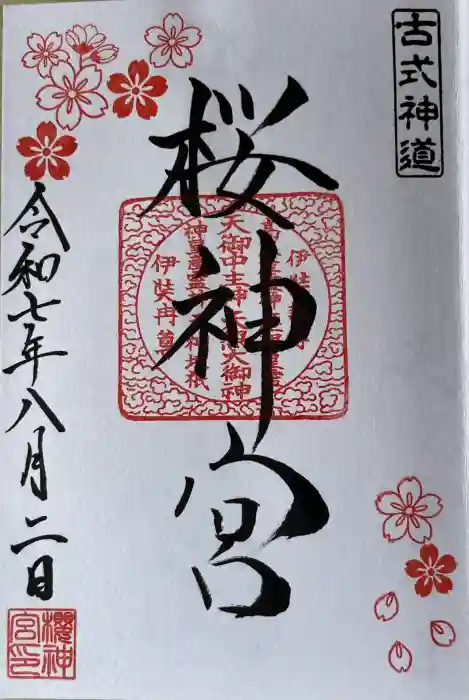 古式神道
桜神宮
伊弉
天御中主神天照大御神
伊弉冉尊
令和七年八月二日
櫻神
宮印